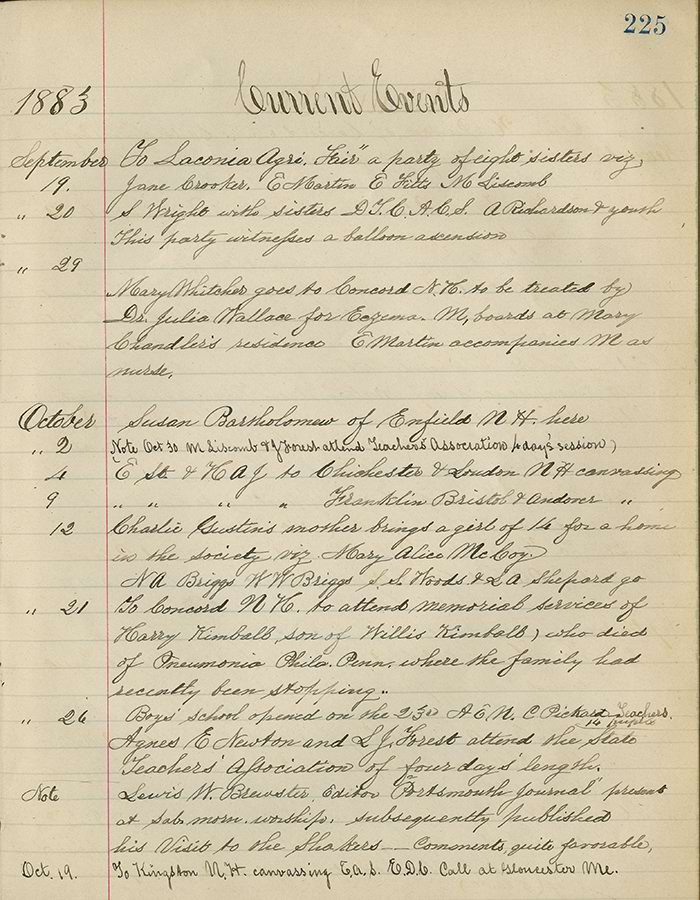 225
Current Events
1883
September To Laconia Agri. Fair" a party of eight sisters viz,
19. Jane Crooker. E Martin E Fitts M Liscomb
" 20 S Wright with sisters D.T.C. A.C.S. A Richardson & youth
This party witnesses a balloon ascension
" 29
Mary Whitcher goes to Concord N.H. to be treated by
Dr. Julia Wallace for Eczema. M, boards at Mary
Chandler's residence E Martin accompanies M as
nurse.
October Susan Bartholomew of Enfield N H. here
" 2 Note Oct 30 M Liscomb & J Forest attend Teachers' Association (4 day's session)
4 E St. & H A J to Chichester & Loudon N H canvassing
9 " " " " Franklin Bristol & Andover "
12 Charlie Gustin's mother brings a girl of 14 for a home
in the society viz. Mary Alice McCoy
N A Briggs H W Briggs S. S. Woods & L A Shepard go
" 21 To Concord N H. to attend memorial services of
Harry Kimball, son of Willis Kimball) who died
of Pneumonia Phila. Penn. where the family had
recently been stopping..
" 26 Boys' school opened on the 23rd A E N. C Pickard Teachers.
14
Agnes E Newton and L J. Forest attend the State
Teachers' Association of four days' length.
Note Lewis W. Brewster, Editor "Portsmouth Journal" present
at Sab. morn. worship. subsequently published
his Visit to the Shakers — Comments quite favorable,
Oct. 19. To Kingston N.H. canvassing E.A.S. E.D.C. Call at Gloucester Me.